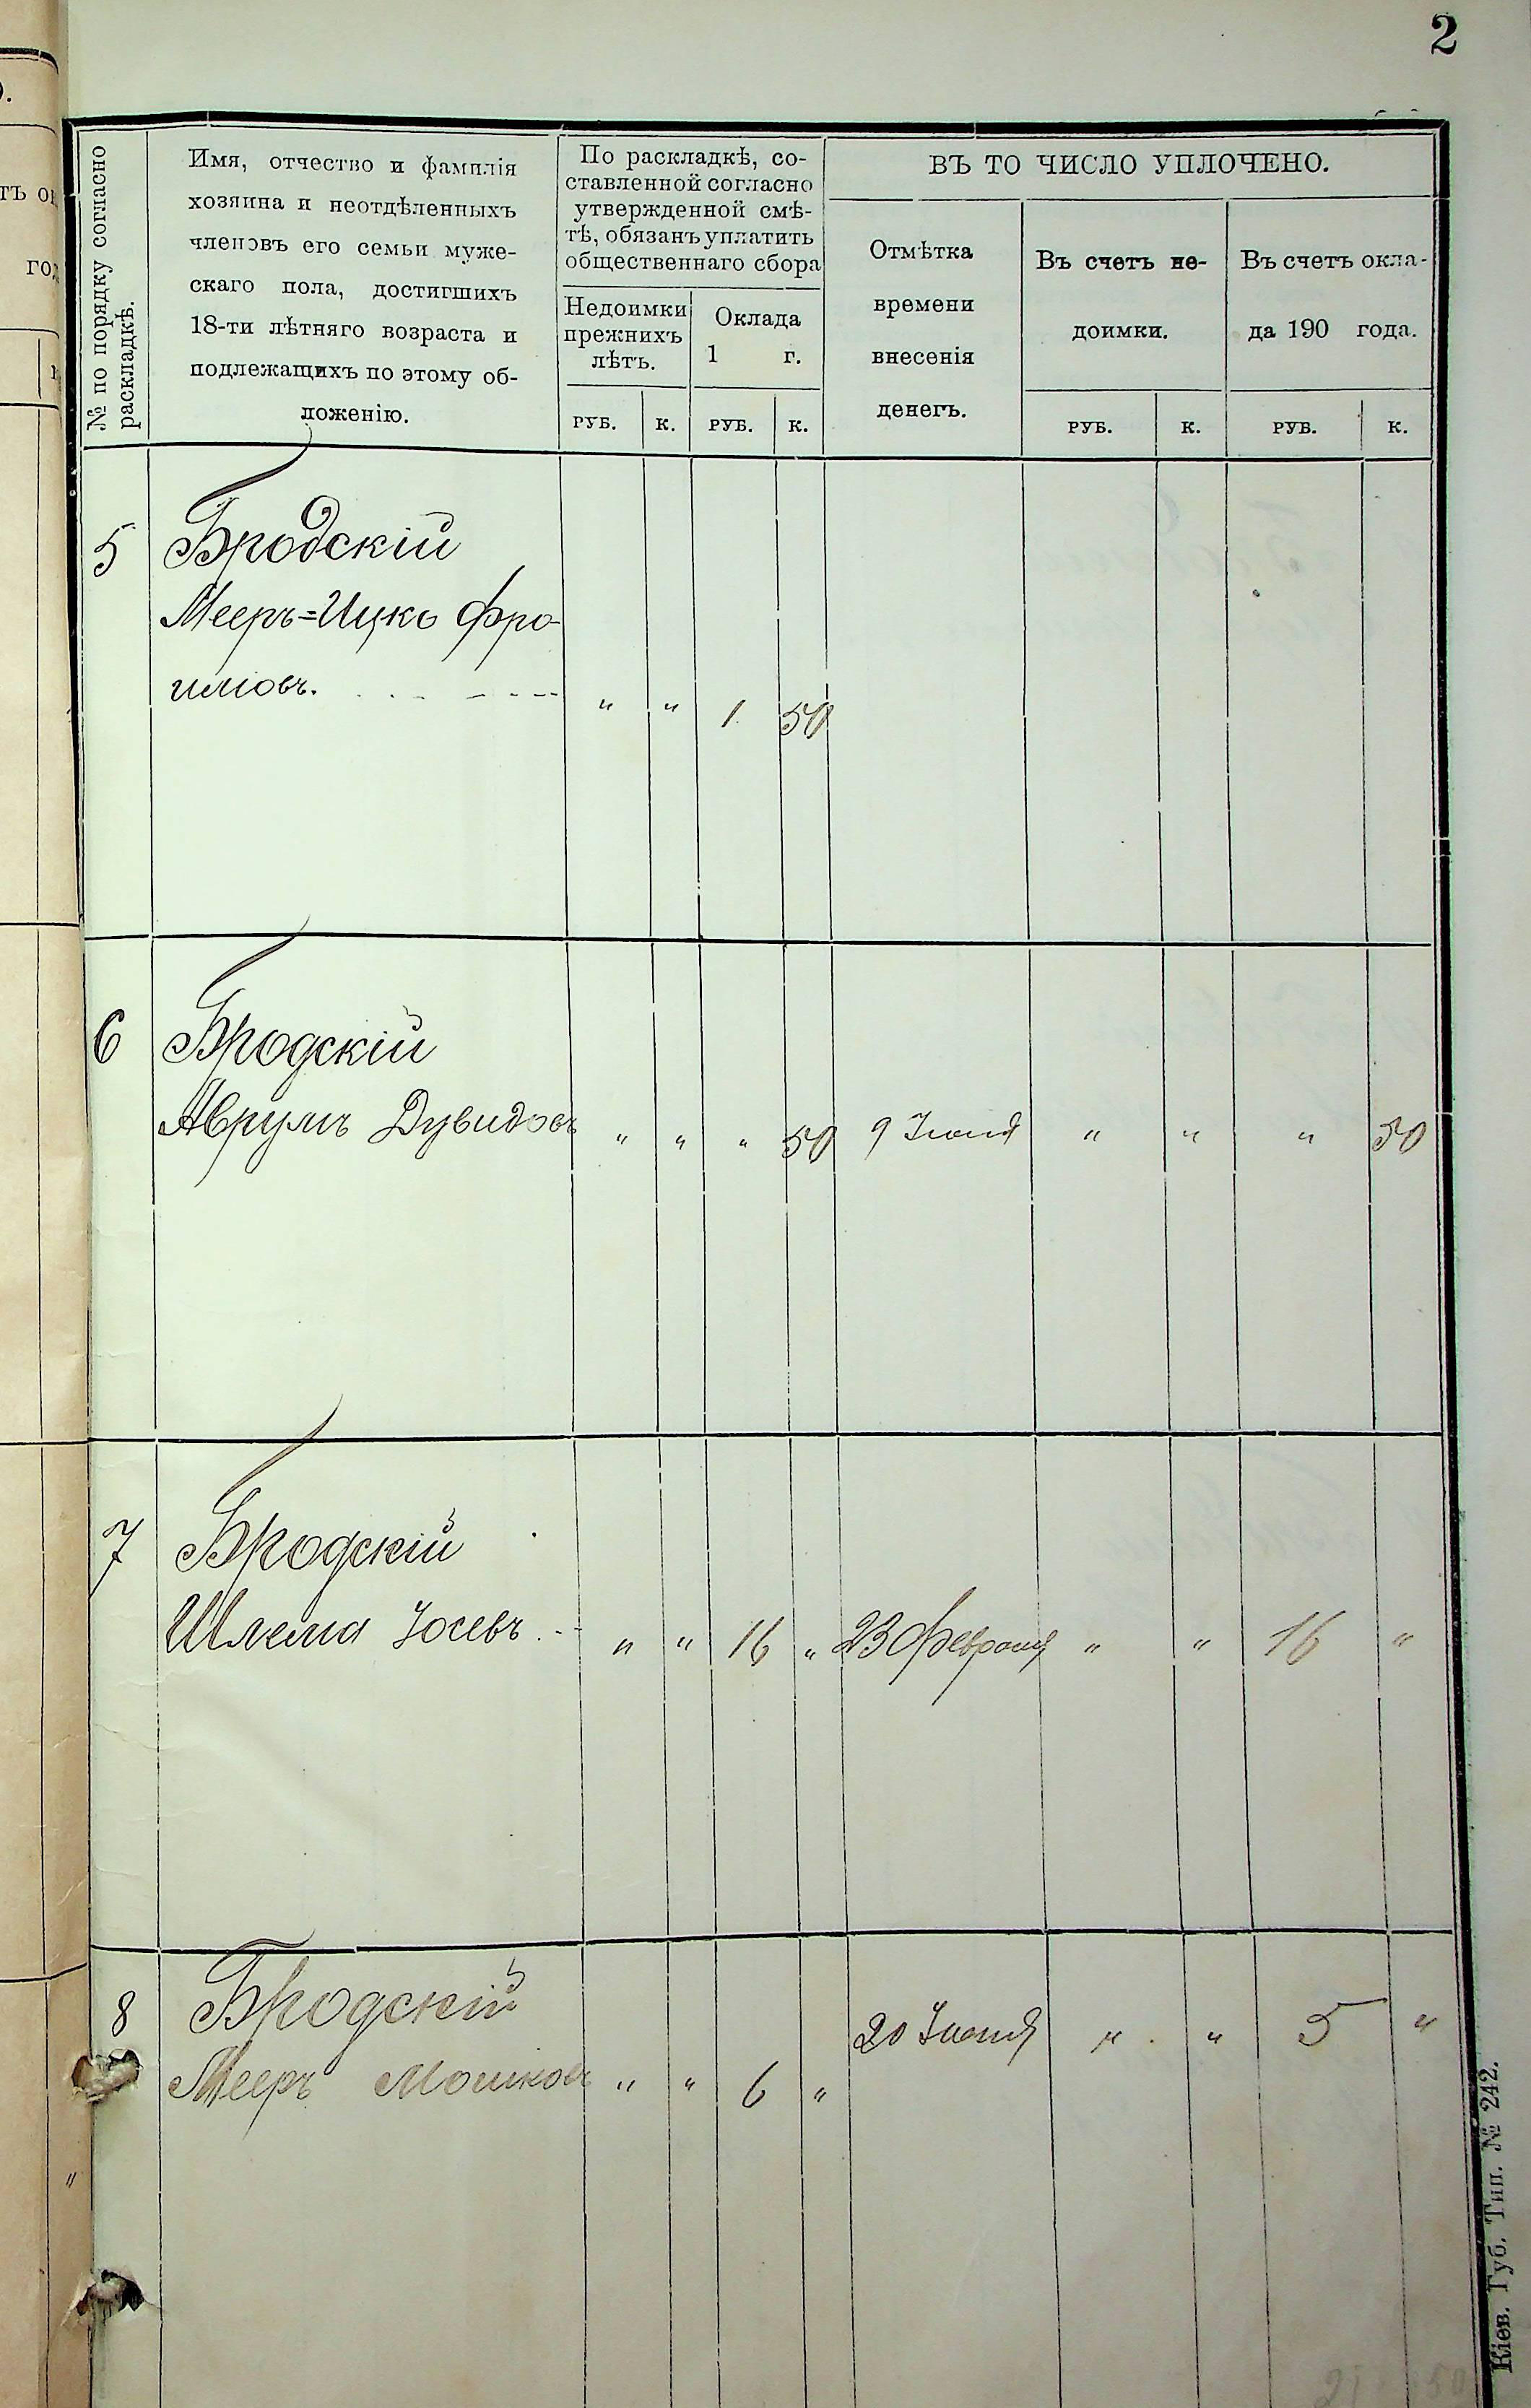 2
№ по порядку согласно
раскладкѣ.
Имя, отчество и фамилія
хозяина и неотдѣленныхъ
членовъ его семьи муже-
скаго пола, достигшихъ
18-ти лѣтняго возраста и
подлежащихъ по этому об-
ложенію.
По раскладкѣ, со-
ставленной согласно
утвержденной смѣ-
тѣ, обязанъ уплатить
общественнаго сбора
Недоимки
прежнихъ
лѣтъ.
Оклада
1 г.
ВЪ ТО ЧИСЛО УПЛОЧЕНО.
Отмѣтка
времени
внесенія
денегъ.
Въ счетъ не-
доимки.
Въ счетъ окла-
да 190 года.
РУБ. К. РУБ. К. РУБ. К. РУБ. К.
5 Бродскій
Мееръ=Ицко Фро-
имовъ. " " 1 50
6 Бродскій
Аврумъ Дувидовъ " " " 50 9 Іюня " " " 50
7 Бродскій
Шлема Іосевъ " " 16 " 23 Февраля " " 16 "
8 Бродскій
20 Іюня " " 5 "
Мееръ Мошковъ " " 6 "
Кіев. Губ. Тип. № 242.